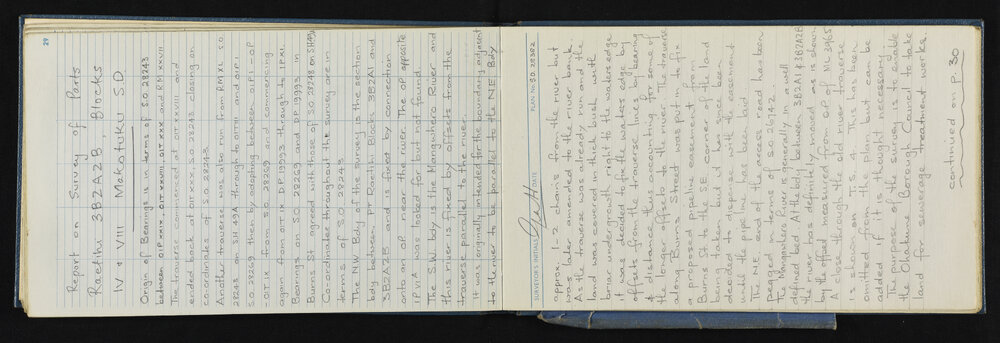 29
Report on Survey of Parts
Raetihi 3B2A2B, Blocks
IV & VIII Makotuku S.D
Origin of Bearings is in terms of S.O. 28243
between OIP XXIX, OIT XXVIII and RM XXVII
The traverse commenced at OIT XXVIII and
ended back at OIT XXX, S.O. 28243 closing on
co-ordinates of S.O. 28243.
Another traverse was also run from RM XL S.O
28245 on SH 49A through to OIT II and OIP I
S.O 28269 then by adopting between OIP I - OP
- OIT IX from S.O. 28269 and commencing
again from OIT IX DP 19993 through to IP XI.
Bearings on 28269 and DP. 19993 in
Burns St agreed with those of S.O 28245 on SH49A
Co-ordinates throughout the survey are in
terms of S.O 28243
The NW Bdy of the survey is the section
bdy between, Pt Raetihi Blocks 3B2A1 and
3B2A2B and is fixed by connections
onto an OP near the river. The OP opposite
IP VI A was looked for but not found.
The S.W. bdy is the Mangawhero River and
this river is fixed by offsets from the
traverse parallel to the river.
It was originally intended for the boundary adjacent
to the river to be parallel to the N.E. Bdy
SURVEYOR'S INITIALS DATE PLAN NO. S.O. 28382
approx. 1-2 chains from the river but
was later amended to the river bank.
As the traverse was already run and the
land was covered in thick bush with
briar undergrowth right to the waters edge
it was decided to fix the waters edge by
offsets from the traverse lines by bearing
& distance, thus accounting for some of
the longer offsets to the river. The traverse
along Burns Street was put in to fix
a proposed pipeline easement from
Burns St to the SE corner of the land
being taken, but it has since been
decided to dispense with the easement
until the pipeline has been laid.
The N.E. end of the access road has been
pegged in terms of S.O. 26192.
The Mangawhero River is generally in a well
defined bed. At the bdy between 3B2A1 & 3B2A2B
the river has definitely moved as is shown
by the offset measured from OP of ML 3965
A close through the old traverse
is shown on T.S. 4. This has been
omitted from the plan but can be
added if it is thought necessary.
The purpose of the survey is to take
the Ohakune Borough Council to take
land for sewerage treatment works.
continued on p. 30